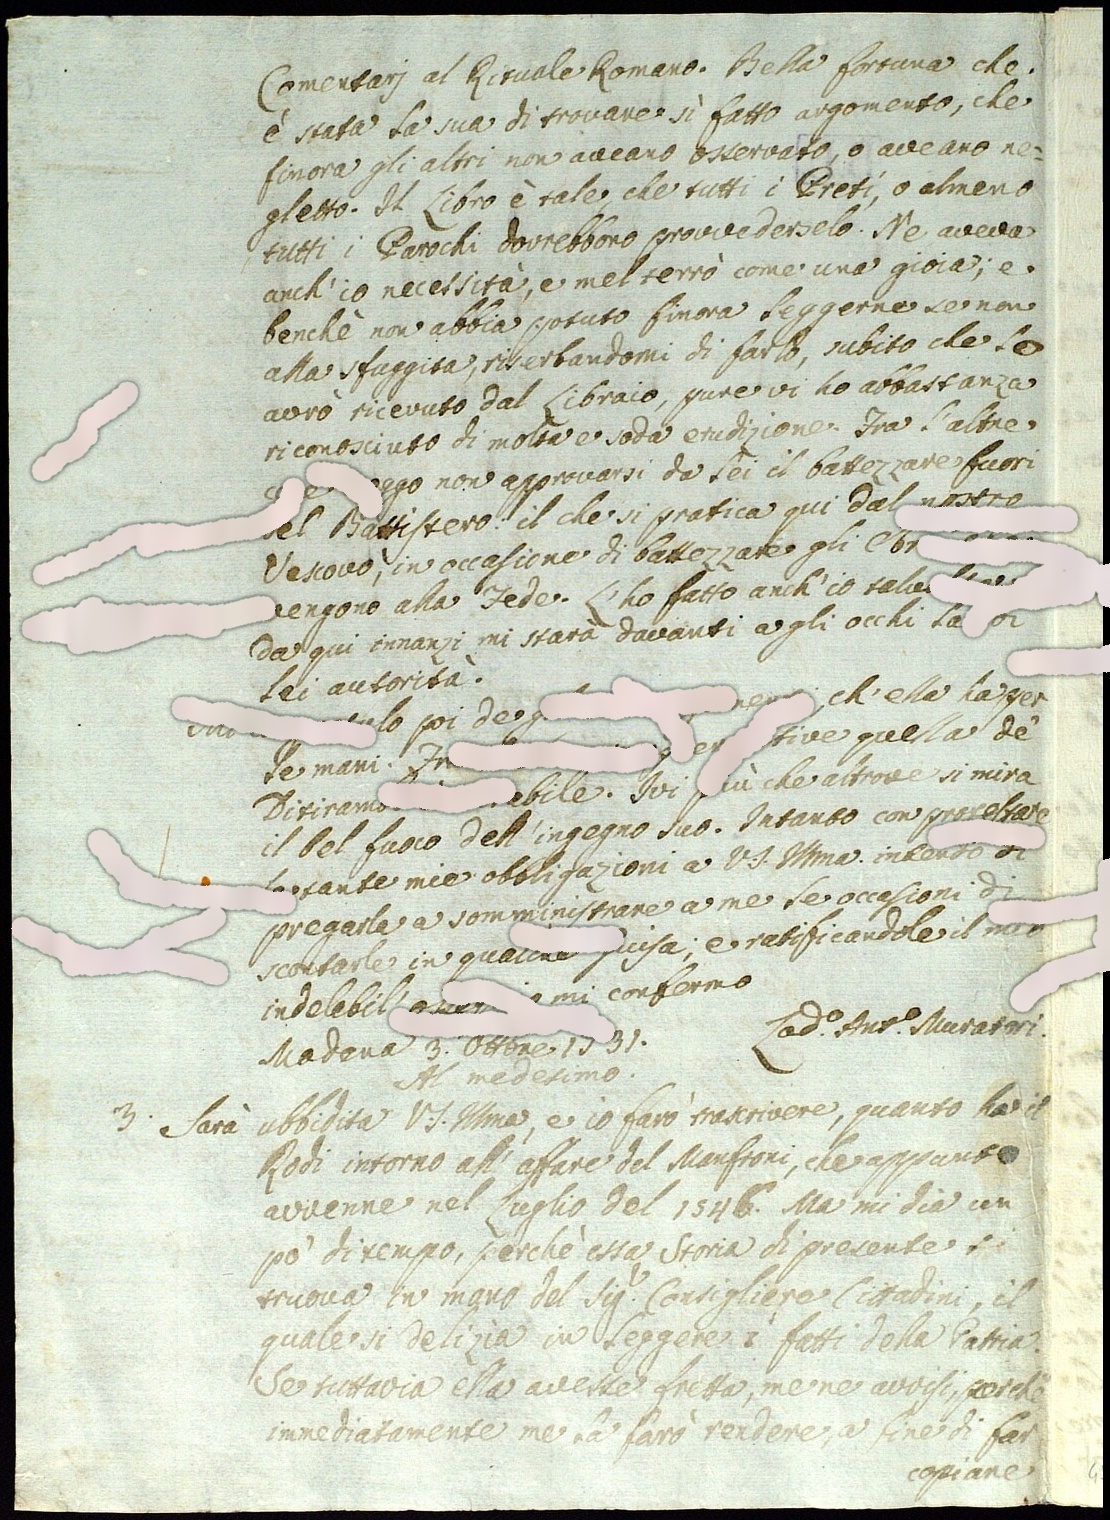 Comentarj al Rituale Romano. Bella fortuna che
è stata la sua di trovare sì fatto argomento, che
finora gli altri non aveano osservato, o aveano ne=
gletto. Il Libro è tale, che tutti i Preti, o almeno
tutti i Parochi dovrebbono provvederselo. Ne aveva
anch' io necessità, e mel terrò come una gioia; e
benchè non abbia potuto finora leggerne se non
alla sfuggita, riserbandomi di farlo, subito che lo
avrò ricevuto dal Libraio, pure vi ho abbastanza
riconosciuto di molta e soda erudizione. Fra l'altre
non approvarsi da lei il battezzare fuori
del Battistero: il che si pratica qui dal nostro
Vescovo, in occasione di battezzare gli
vengono alla Fede. L'ho fatto anch' io
da qui innanzi mi starà davanti agli occhi la
lei autorità.
poi ch' ella ha per
le mani. quella de'
Ivi più che altrove si mira
il bel fuoco dell' ingegno suo. Intanto con protestare
le tante mie obbligazioni a V.S. Illma. intendo di
pregarla a somministrare a me le occasioni di
scontarle in qualche guisa; e ratificandole il mio
mi confermo
Modana 3. Ottbre 1731. Lod.º Ant.º Muratori.
Al medesimo.
3. Sarà ubbidita V.S. Illma, e io farò trascrivere, quanto ha il
Rodi intorno all' affare del Manfroni, che appunto
avvenne nel Luglio del 1546. Ma mi dia un
pò di tempo, perchè essa Storia di presente si
truova in mano del Sig.r Consigliere Cittadini, il
quale si delizia in leggere i fatti della Patria.
Se tuttavia ella avesse fretta, me ne avvisi, perchè
immediatamente me la farò rendere, a fine di far
copiare